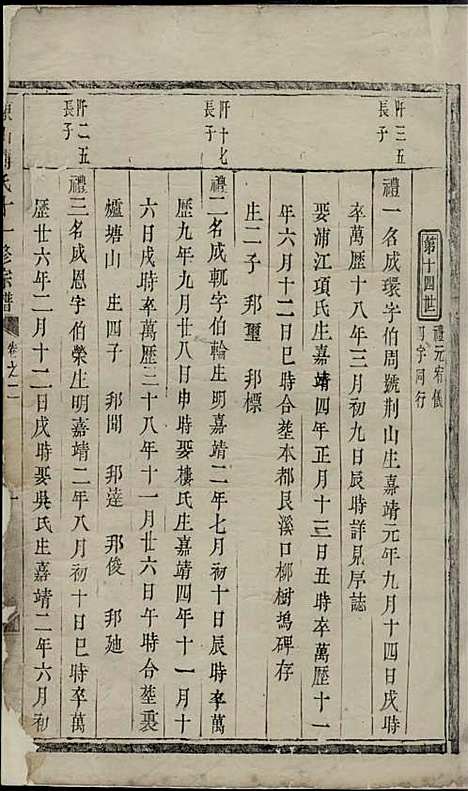 第十四世
禮元宥儀
四字同行
阡三五
長子
禮一名成環字伯周號荆山生嘉靖元年九月十四日戌時
卒萬歷十八年三月初九日辰時詳見序誌
娶浦江項氏生嘉靖四年正月十三日丑時卒萬歷十一
年六月十二日巳時合塟本都艮溪口柳樹塢碑存
生二子 邦璽 邦標
阡十七
長子
禮二名成軏字伯輪生明嘉靖二年七月初十日辰時卒萬
歷九年九月廿八日申時娶樓氏生嘉靖四年十一月十
六日戌時卒萬歷三十八年十一月廿六日午時合塟裏
櫨塘山 生四子 邦聞 邦達 邦俊 邦廸
阡二五
長子
禮三名成恩字伯榮生明嘉靖二年八月初十日巳時卒萬
歷廿六年二月十二日戌時娶吳氏生嘉靖二年六月初
氏十一修宗譜 卷之二